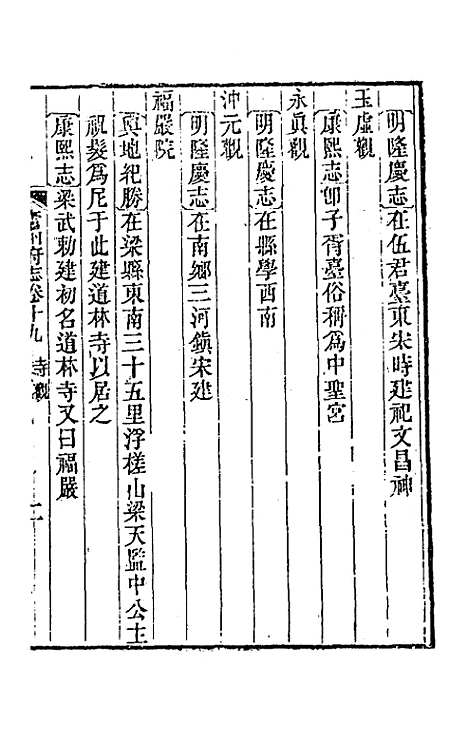 明隆慶志在伍君臺東宋時建祀文昌神
玉虛觀
康熙志卽子胥臺俗稱為中聖宮
永眞觀
明隆慶志在縣學西南
沖元觀
明隆慶志在南鄉三河鎭宋建
福嚴院
輿地紀勝在梁縣東南三十五里浮槎山梁天監中公主
祝髮爲尼于此建道林寺以居之
康熙志梁武勅建初名道林寺又曰福嚴
府志卷十九 寺觀